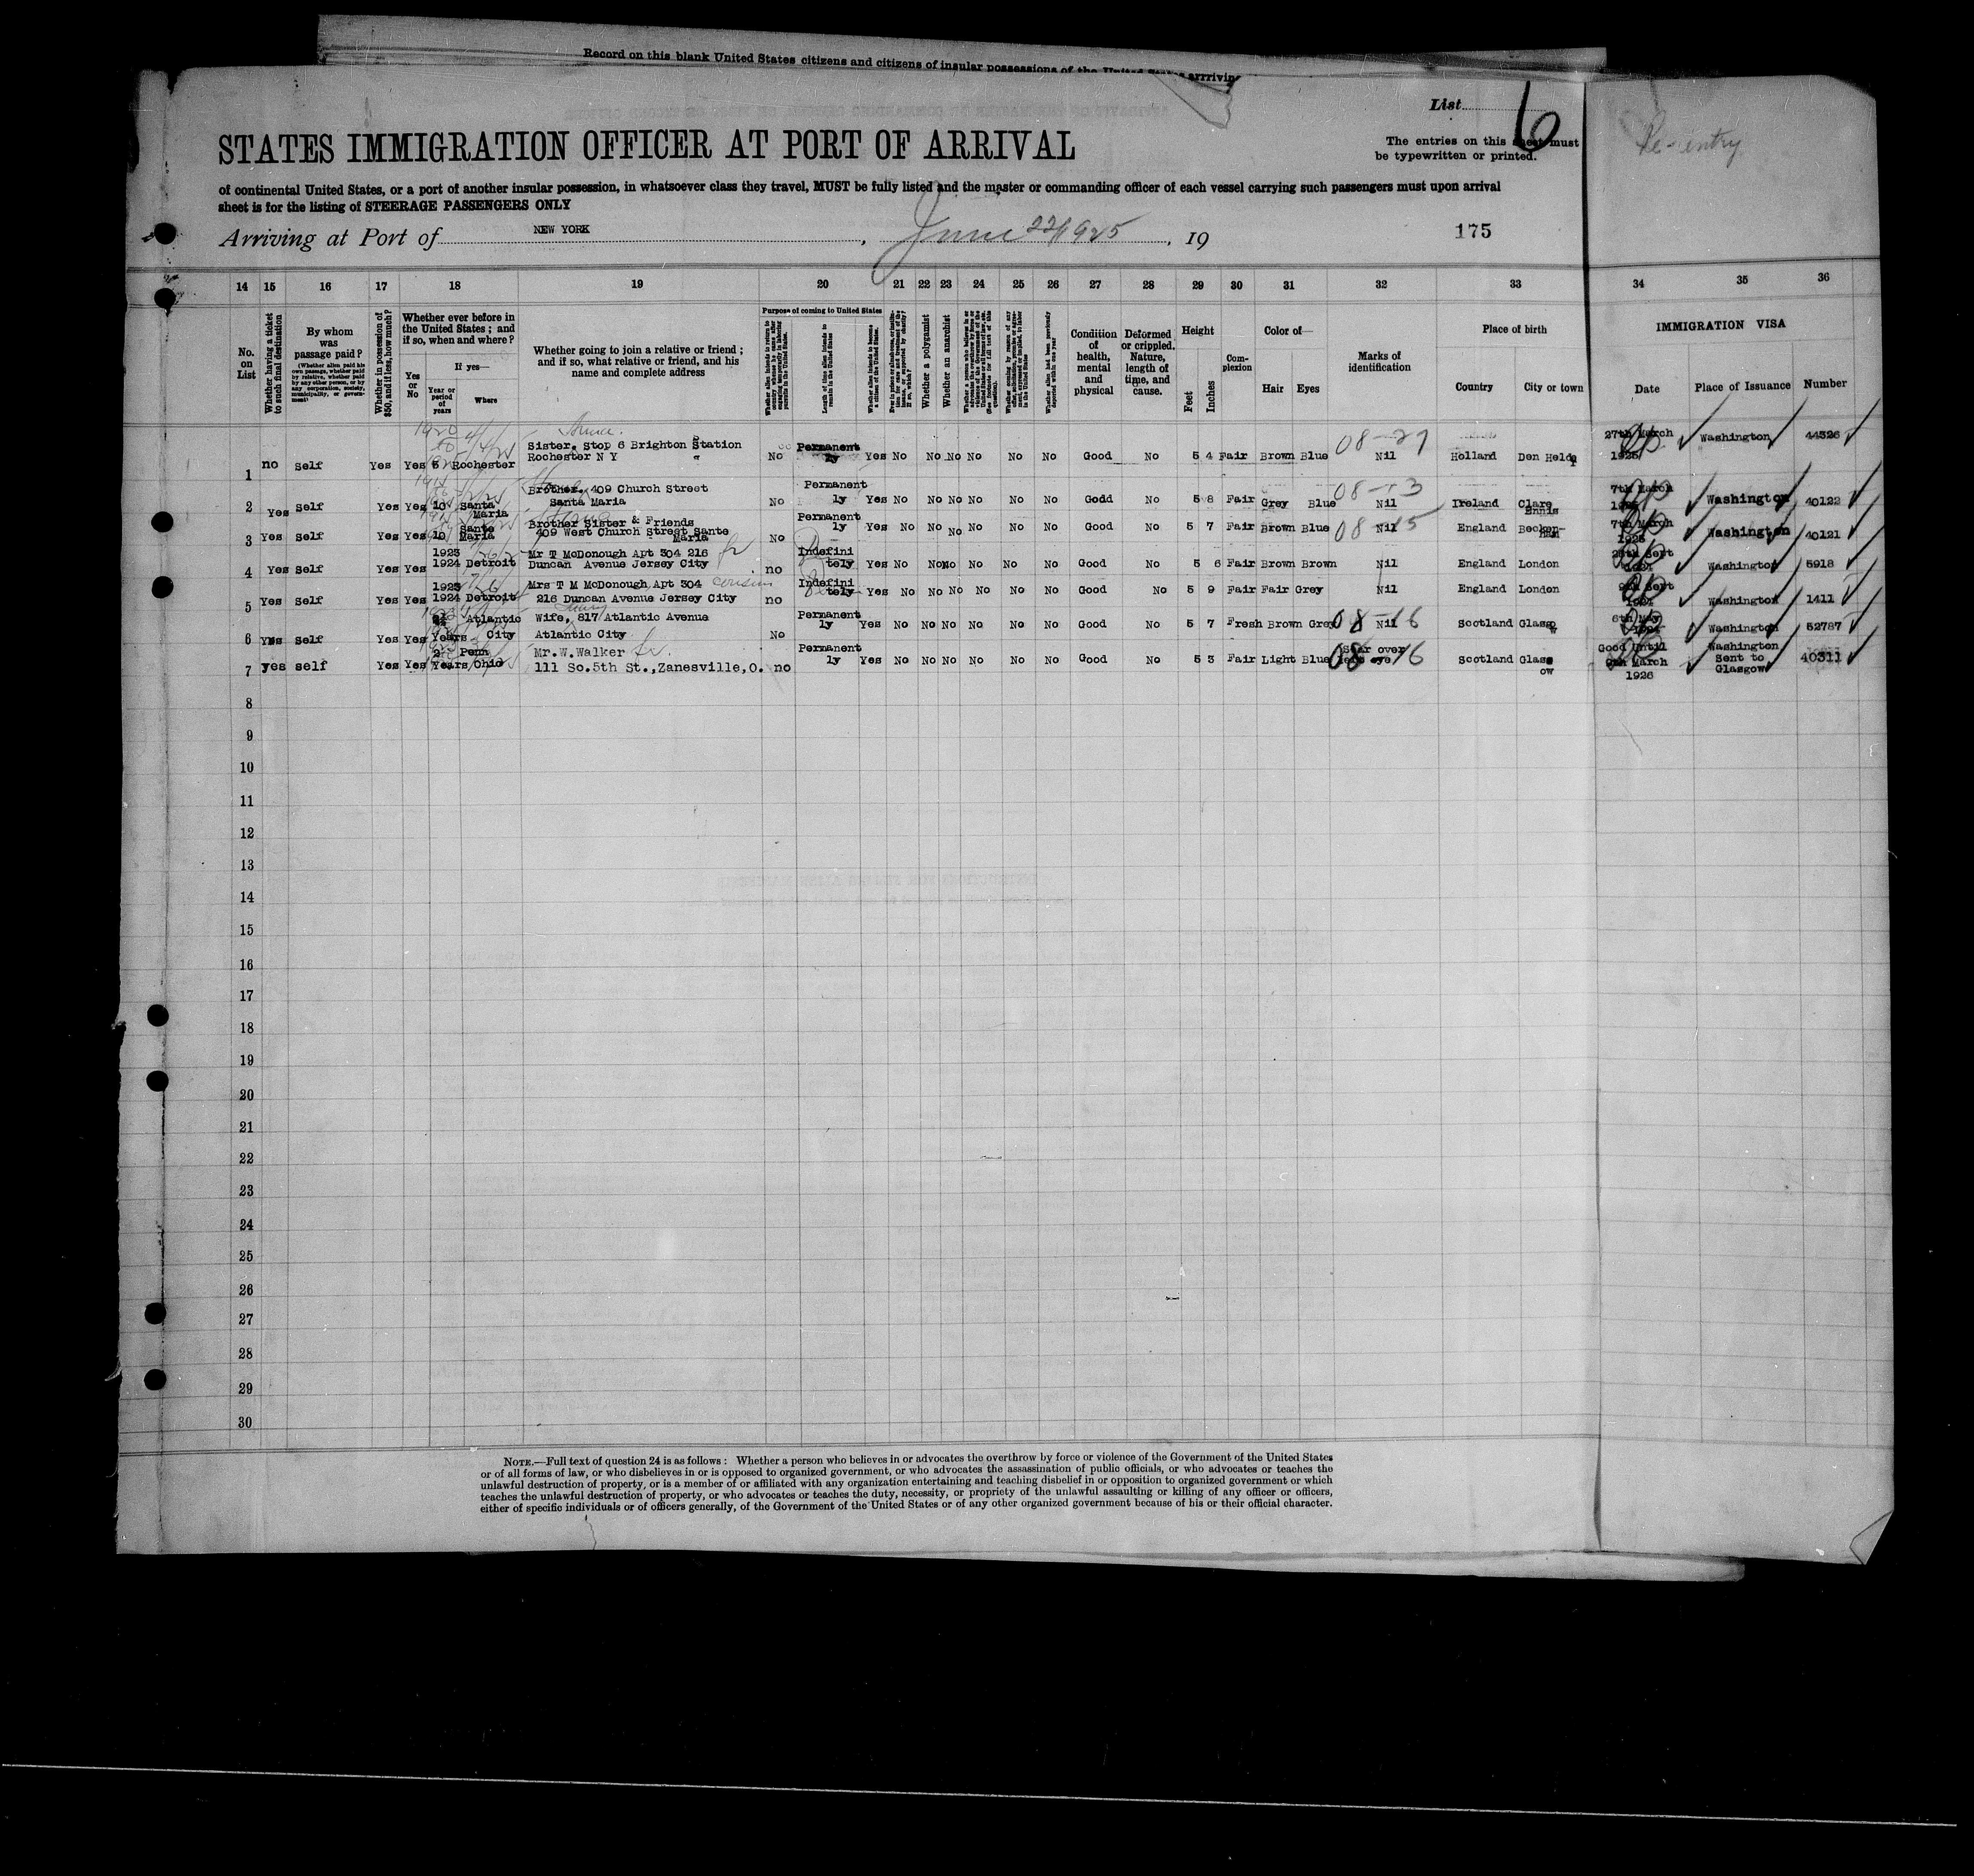 Record on this blank United States citizens and citizens of insular possessions of the United States arriving
List 6
Re-entry
The entries on this sheet must
be typewritten or printed.
STATES IMMIGRATION OFFICER AT PORT OF ARRIVAL
of continental United States, or a port of another insular possession, in whatsoever class they travel, MUST be fully listed and the master or commanding officer of each vessel carrying such passengers must upon arrival
sheet is for the listing of STEERAGE PASSENGERS ONLY
Arriving at Port of NEW YORK, June 22 1925, 19
175
14 15 16 17 18 19 20 21 22 23 24 25 26 27 28 29 30 31 32 33 34 35 36
No. on List
Whether having a ticket to such final destination
By whom was passage paid?
(Whether alien paid his own passage, whether paid by relative, whether paid by any other person, or by any corporation, society, municipality, or government)
Whether in possession of $50, and if less, how much?
Whether ever before in the United States; and if so, when and where?
Yes or No
If yes—
Year or period of years
Where
Whether going to join a relative or friend; and if so, what relative or friend, and his name and complete address
Purpose of coming to United States
Length of time alien intends to remain in the United States
Whether alien intends to become a citizen of the United States
Whether a polygamist
Whether an anarchist
Condition of health, mental and physical
Deformed or crippled. Nature, length of time, and cause.
Height
Feet Inches
Complexion
Color of—
Hair Eyes
Marks of identification
Place of birth
Country City or town
IMMIGRATION VISA
Date Place of Issuance Number
1 no Self Yes Yes 5 Rochester Sister, Stop 6 Brighton Station Rochester N Y No Permanently Yes No No No No No No Good No 5 4 Fair Brown Blue 08-27 Nil Holland Den Helde 27th March 1925 Washington 44326
2 Yes Self Yes Yes 10 Santa Maria Brother, 409 Church Street Santa Maria No Permanently Yes No No No No No No Godd No 5 8 Fair Grey Blue 08-13 Nil Ireland Clare Ennis 7th March Washington 40122
3 Yes Self Yes Yes 10 Sante Maria Brother Sister & Friends 409 West Church Street Sante Maria No Permanently Yes No No No No No No Good No 5 7 Fair Brown Blue 08-15 Nil England Becken-ham 7th March 1925 Washington 40121
4 Yes Self Yes Yes 1923 1924 Detroit Mr T McDonough Apt 304 216 Duncan Avenue Jersey City no Indefinitely Yes No No No No No No Good No 5 6 Fair Brown Brown Nil England London Sept 1924 Washington 5918
5 Yes Self Yes Yes 1923 1924 Detroit Mrs T M McDonough Apt 304 cousin 216 Duncan Avenue Jersey City no Indefinitely Yes No No No No No No Good No 5 9 Fair Fair Grey Nil England London 9th Sept 1924 Washington 1411
6 Yes Self Yes Yes Years Atlantic City Wife, 817 Atlantic Avenue Atlantic City No Permanently Yes No No No No No No Good No 5 7 Fresh Brown Grey 08-16 Nil Scotland Glasgo 6th May 1924 Washington 52787
7 yes self Yes Yes 2 Years Penn Ohio Mr.W.Walker fr. 111 So.5th St.,Zanesville,O. no Permanently Yes No No No No No No Good No 5 3 Fair Light Blue 08-16 Scar over Scotland Glasgow Good Until 9th March 1926 Washington Sent to Glasgow 40311
8
9
10
11
12
13
14
15
16
17
18
19
20
21
22
23
24
25
26
27
28
29
30
NOTE.—Full text of question 24 is as follows: Whether a person who believes in or advocates the overthrow by force or violence of the Government of the United States
or of all forms of law, or who disbelieves in or is opposed to organized government, or who advocates the assassination of public officials, or who advocates or teaches the
unlawful destruction of property, or is a member of or affiliated with any organization entertaining and teaching disbelief in or opposition to organized government or which
teaches the unlawful destruction of property, or who advocates or teaches the duty, necessity, or propriety of the unlawful assaulting or killing of any officer or officers,
either of specific individuals or of officers generally, of the Government of the United States or of any other organized government because of his or their official character.